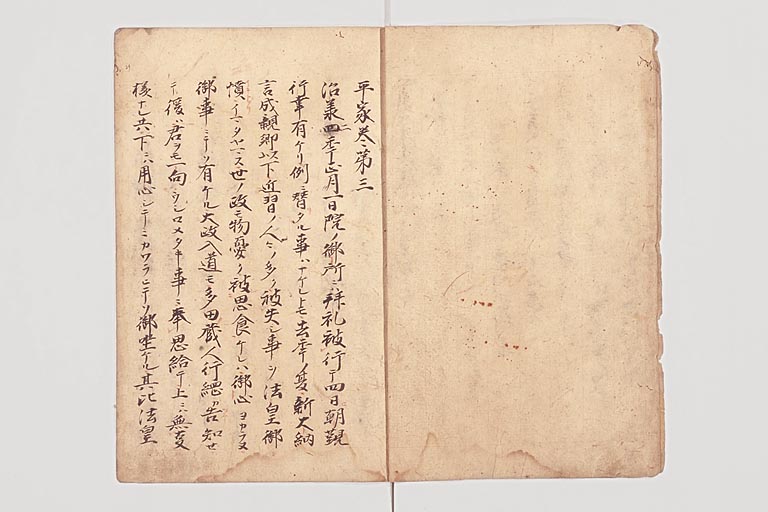 平家巻第三
治美四年正月一日院ノ御所ニハ拝礼被行テ四日朝覲
行幸有ケリ例ニ替タル事ハナケレトモ去年ノ夏新大納
言成親卿以下近習ノ人々ノ多ク被失シ事ヲ法皇御
憤イマタヤマス世ノ政モ物憂ク被思食ケレハ御心ヨカラヌ
御事ニテソ有ケル大政入道モ多田蔵人行綱カ告知セ
テ後ハ君ヲモ一向ウシロメタキ事ニ奉思給テ上ニハ無変
様ナレ共下ニハ用心シテニカワラヒテソ御坐ケル其比法皇